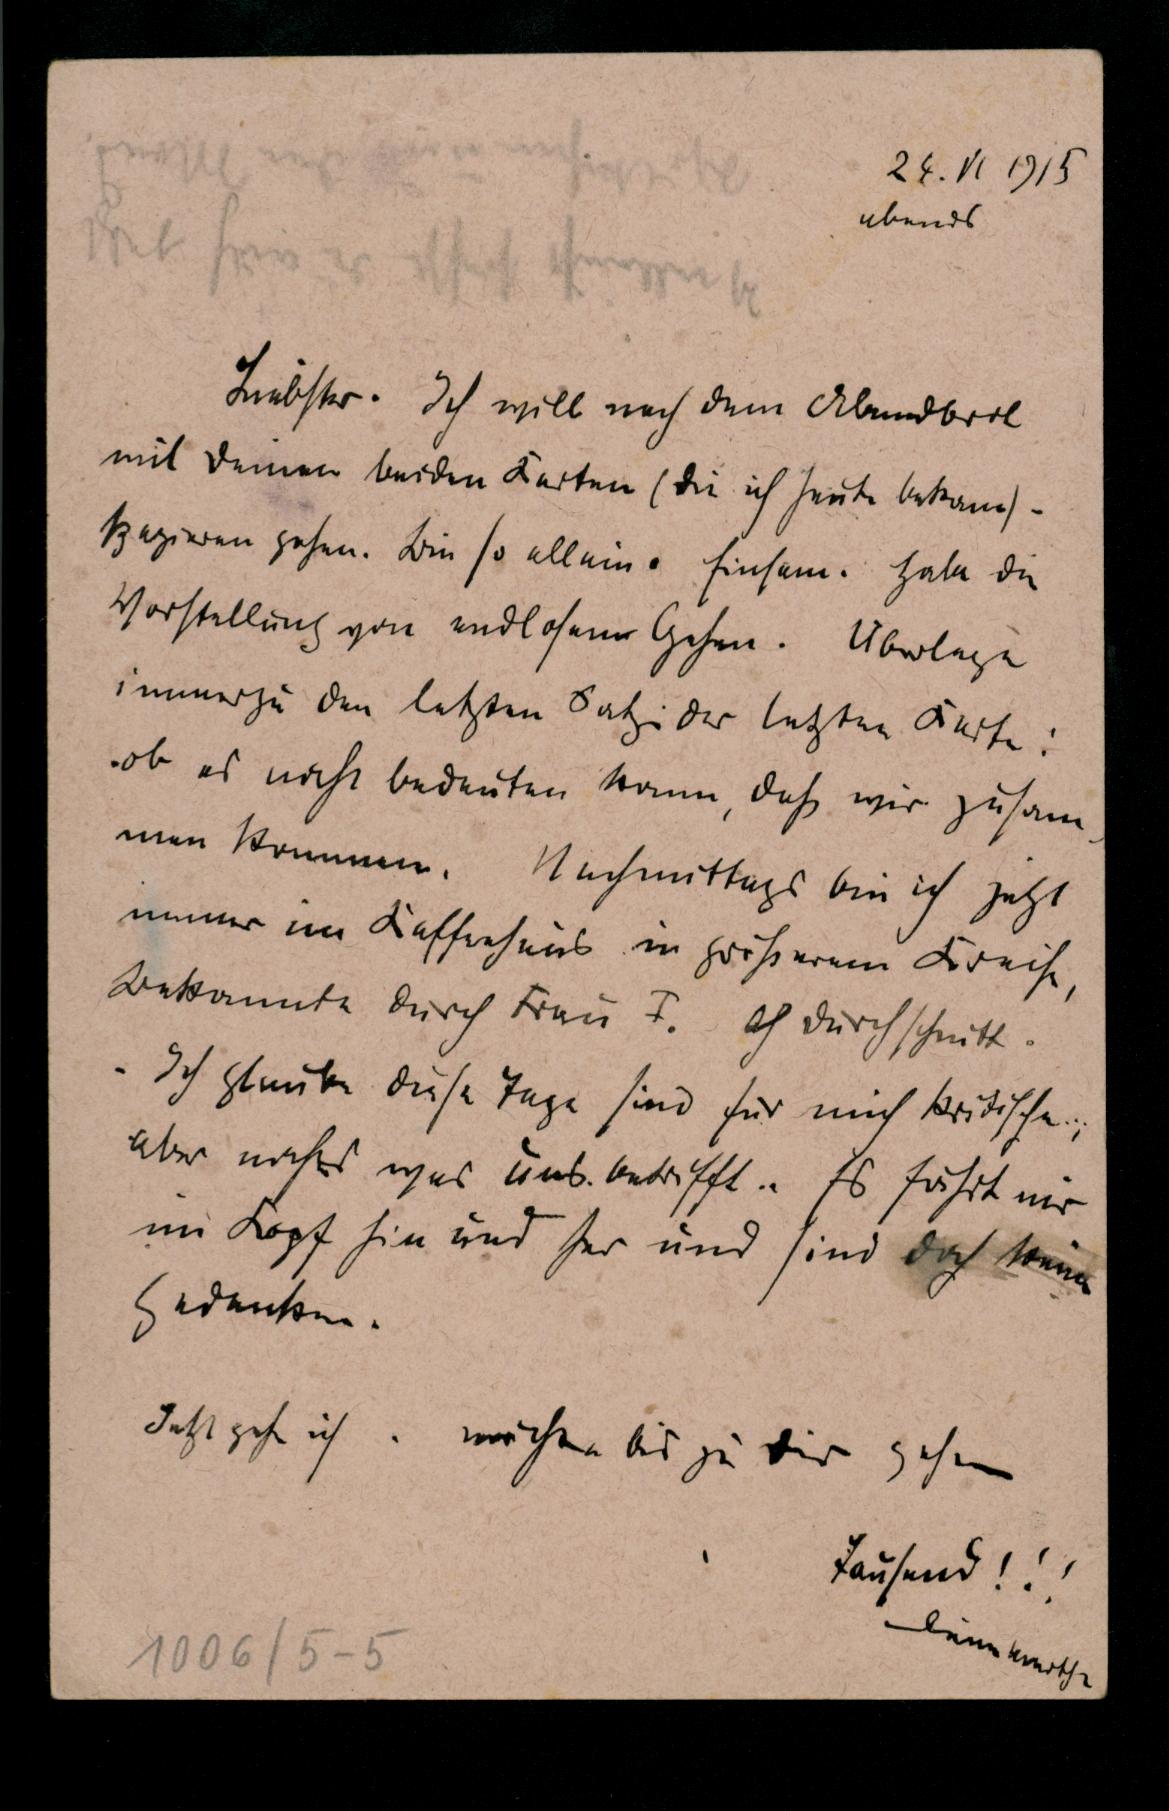 24. VI 1915
abends
Liebster. Ich will nach dem Abendbrot
mit Deinen beiden Karten (die ich heute bekam) -
spazieren gehen. Bin so allein. Einsam. Habe die
Vorstellung von endlosem Gehen. Überlege
immerzu den letzten Satz der letzten Karte:
ob es nicht bedeuten kann, daß wir zusam-
men kommen. Nachmittags bin ich jetzt
immer im Kaffeehaus in größerem Kreise,
Bekannte durch Frau T. Durchschnitt.
- Ich glaube diese Tage sind für mich kritische..,
aber nichts was uns betrifft.. Es fährt mir
im Kopf hin und her und sind doch keine
Gedanken.
Jetzt gehe ich. möchte bis zu Dir gehen
Tausend!!!
Deine
1006/5-5